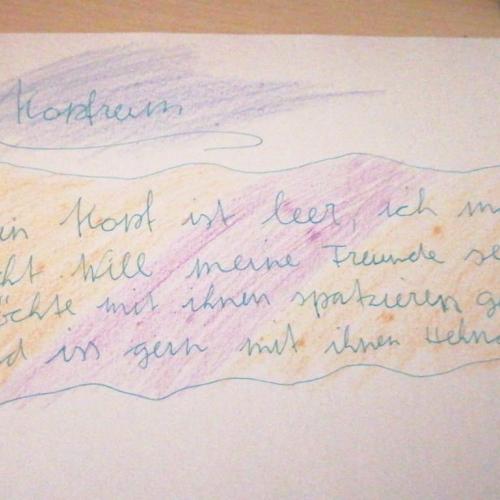 Kopfraum
in Kopf ist leer, ich m
cht Will meine Freunde se
öchte mit ihnen spatzieren g
d iss gern mit ihnen